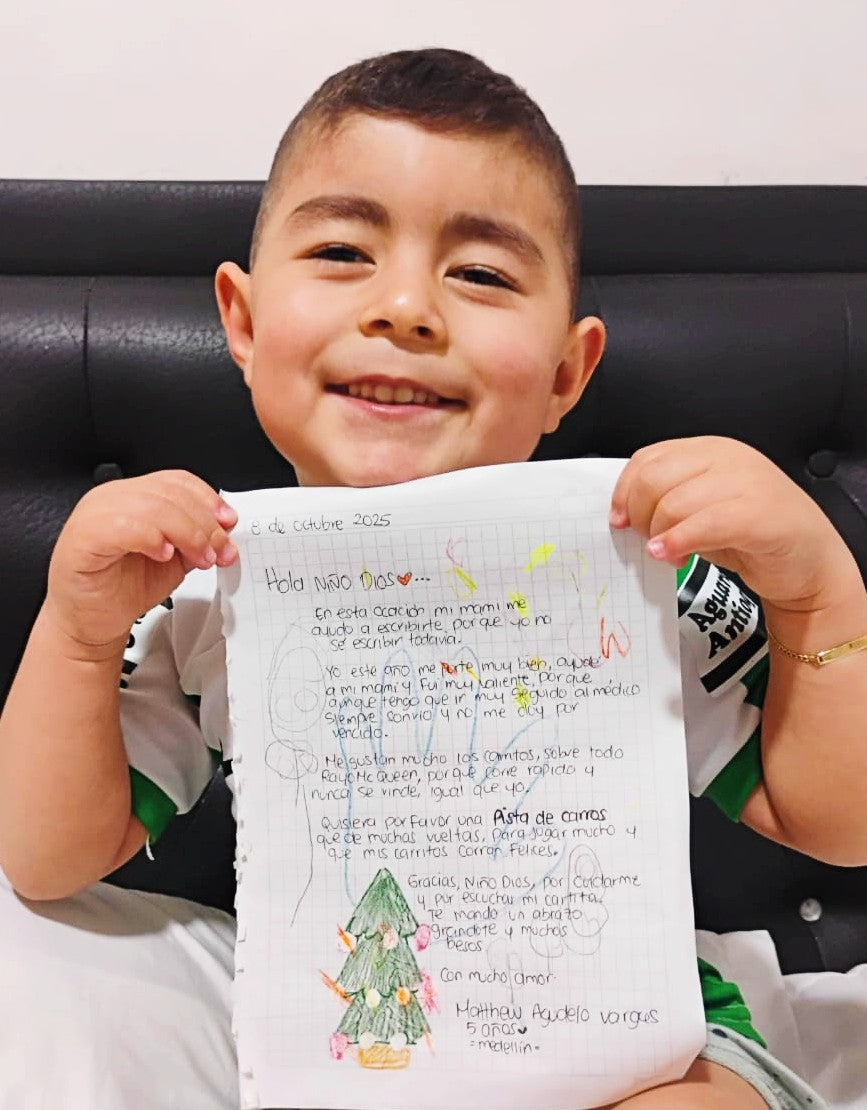 8 de octubre 2025
Hola NIÑO DIOS...
En esta ocación mi mami me
ayudo a escribirte, porque yo no
se escribir todavia.
Yo este año me porte muy bien, ayude
a mi mami y fui muy valiente, porque
aunque tengo que ir muy seguido al médico
siempre sonrio y no me doy por
vencido.
Me gustan mucho los carritos, sobre todo
Rayo McQueen, porque corre rapido y
nunca se rinde, igual que yo.
Quisiera por favor una Pista de carros
que de muchas vueltas, para jugar mucho y
que mis carritos corran felices.
Gracias, Niño Dios, por cuidarme
y por escuchar mi cartita.
Te mando un abrazo
grandote y muchos
besos
Con mucho amor.
Matthew Agudelo vargas
5 años
=medellín=